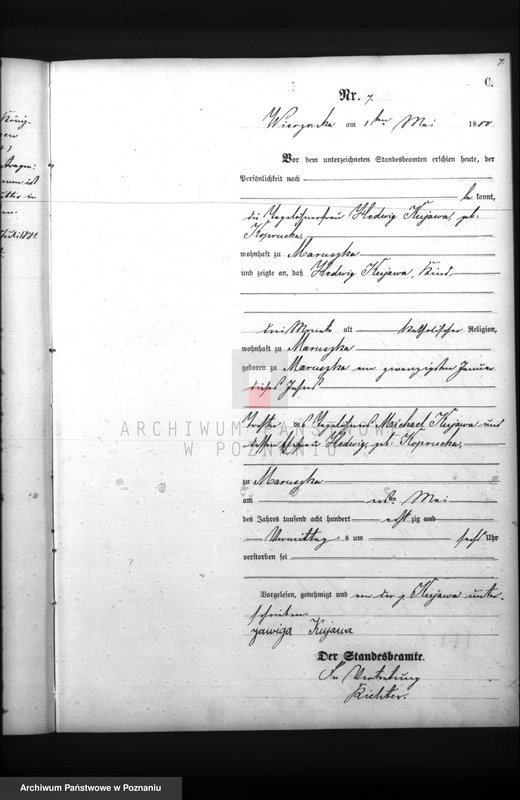 7.
C.
Nr. 7.
am 1ten Mai 1880.
Vor dem unterzeichneten Standesbeamten erschien heute, der
Persönlichkeit nach
be kannt,
die Tagelöhnerfrau Hedwig Kujawa, geb.
Koprucka,
wohnhaft zu Maruszka
und zeigte an, daß Hedwig Kujawa, Kind,
drei Monate alt katholischer Religion,
wohnhaft zu Maruszka
geboren zu Maruszka am zwanzigsten Januar
dieses Jahres
Tochter des Tagelöhners Michael Kujawa und
dessen Ehefrau Hedwig, geb. Koprucka,
zu Maruszka
am ersten Mai
des Jahres tausend acht hundert acht zig und
Vormittag s um sechs Uhr
verstorben sei
Vorgelesen, genehmigt und von der p Kujawa unter-
schrieben
Jawiga Kujawa
Der Standesbeamte.
In Vertretung
Richter.
ARCHIWUM PAŃSTWOWE
W POZNANIU
Archiwum Państwowe w Poznaniu